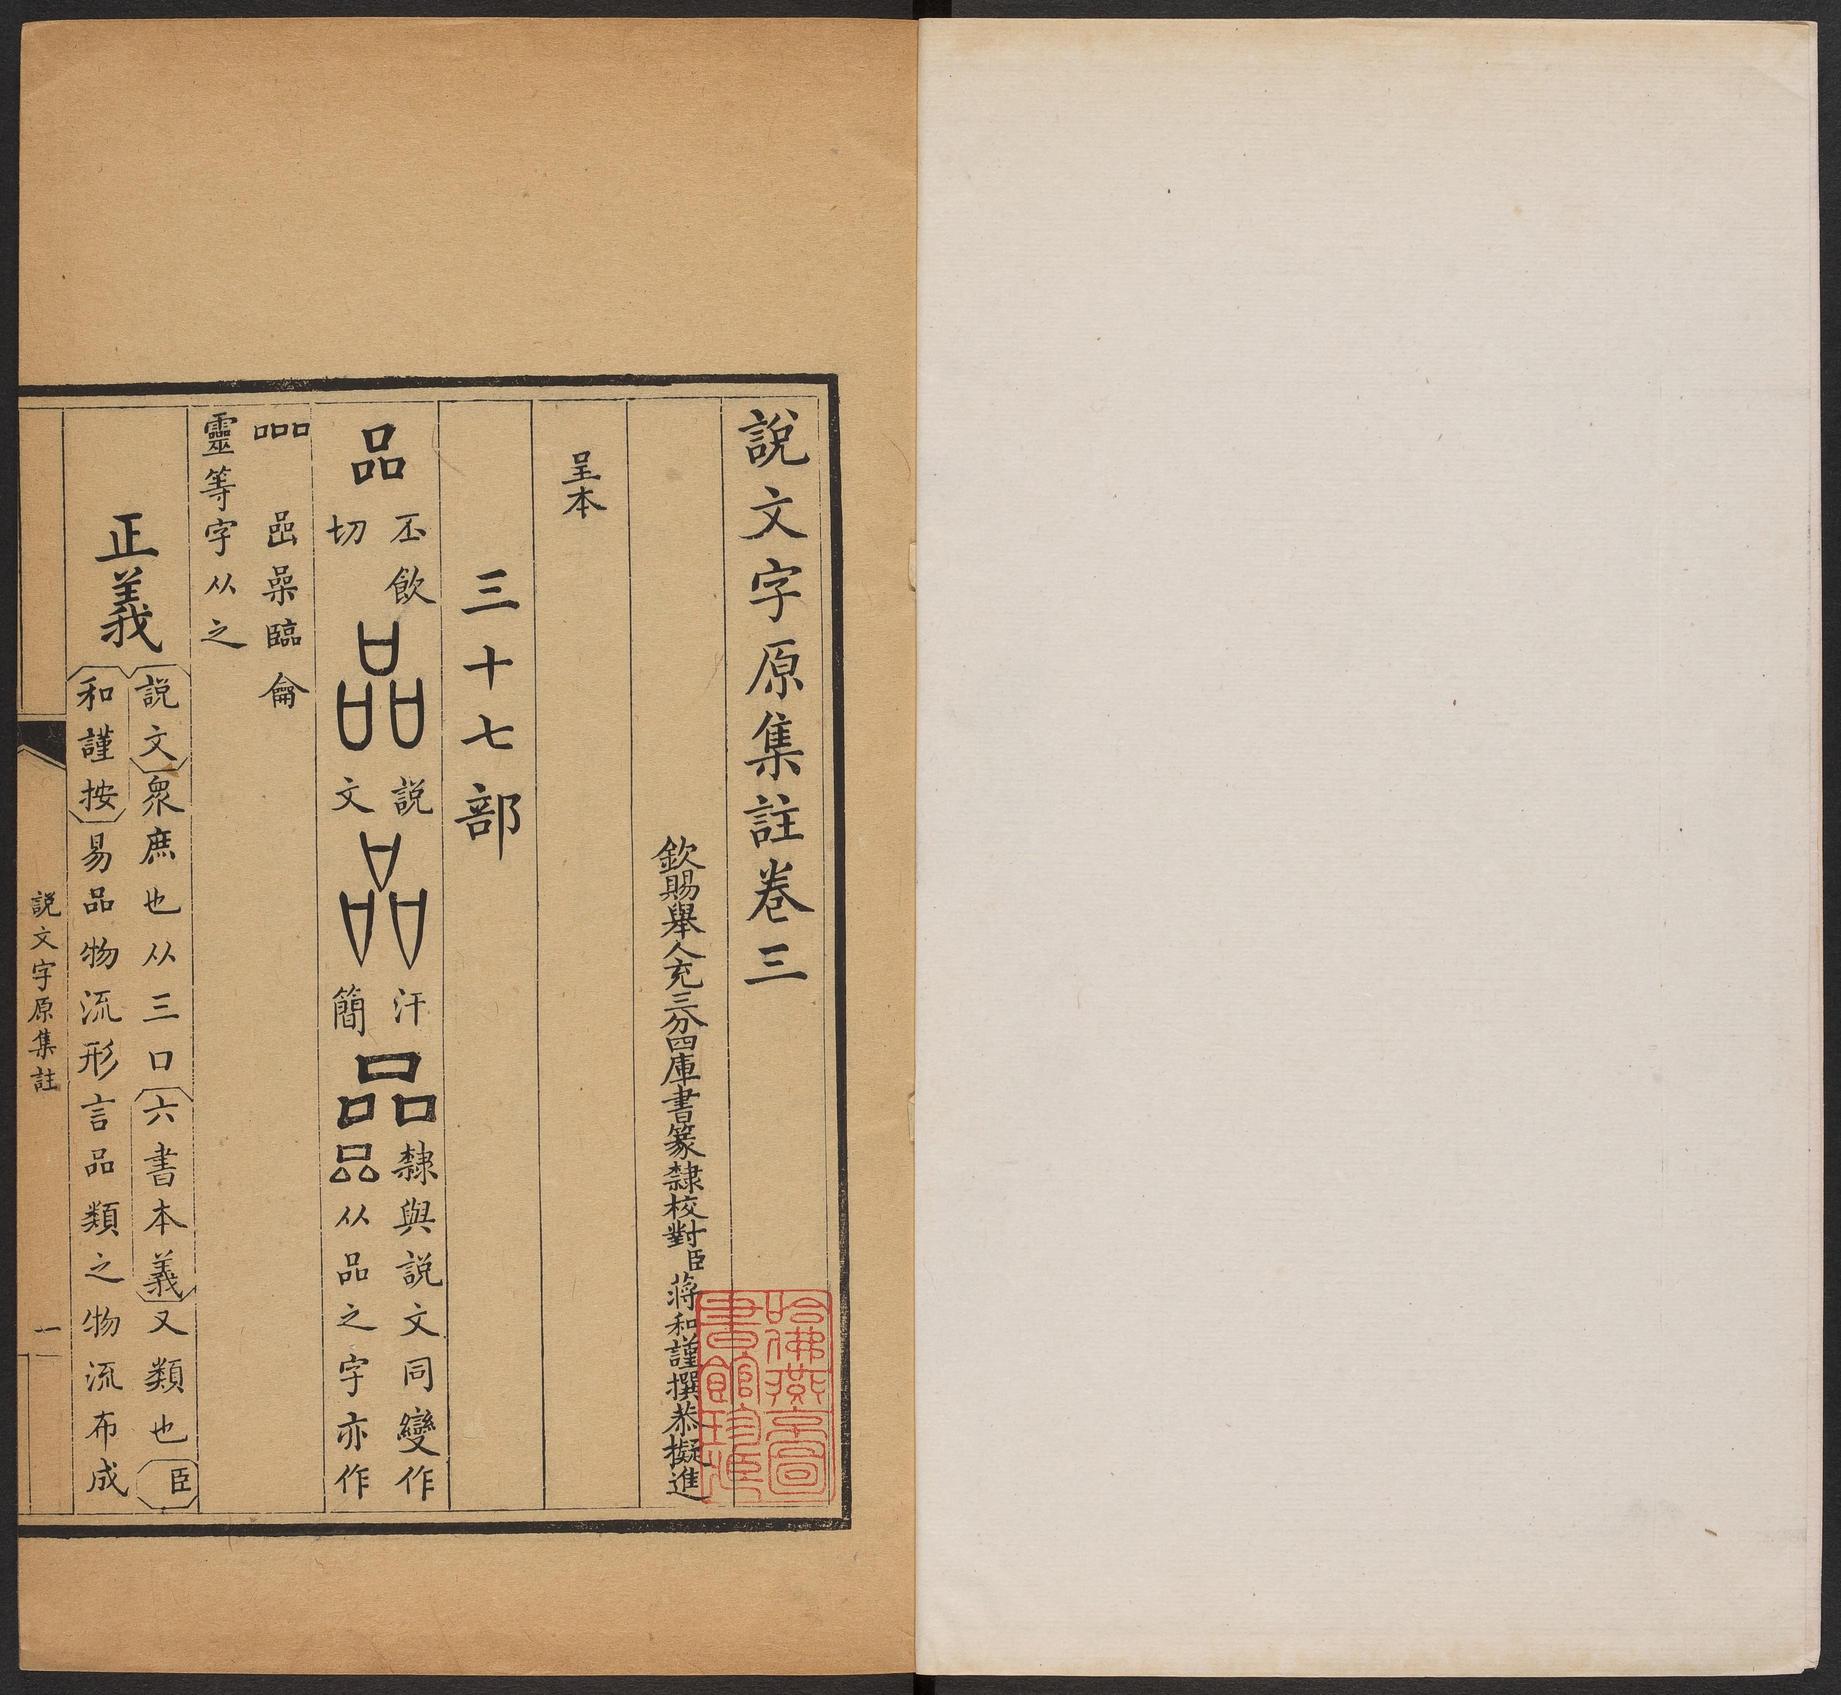 說文字原集註卷三
欽賜舉人充三分四庫書篆隸校對臣蔣和謹撰恭擬進
呈本
三十七部
品 丕飲切 品 說文 品 汗簡 品 隸與說文同變作品从品之字亦作
吅口 嵒喿臨龠靈等字从之
正義 說文衆庶也从三口六書本義又類也臣和謹按易品物流形言品類之物流布成
說文字原集註 一
哈佛燕京圖書館珍藏